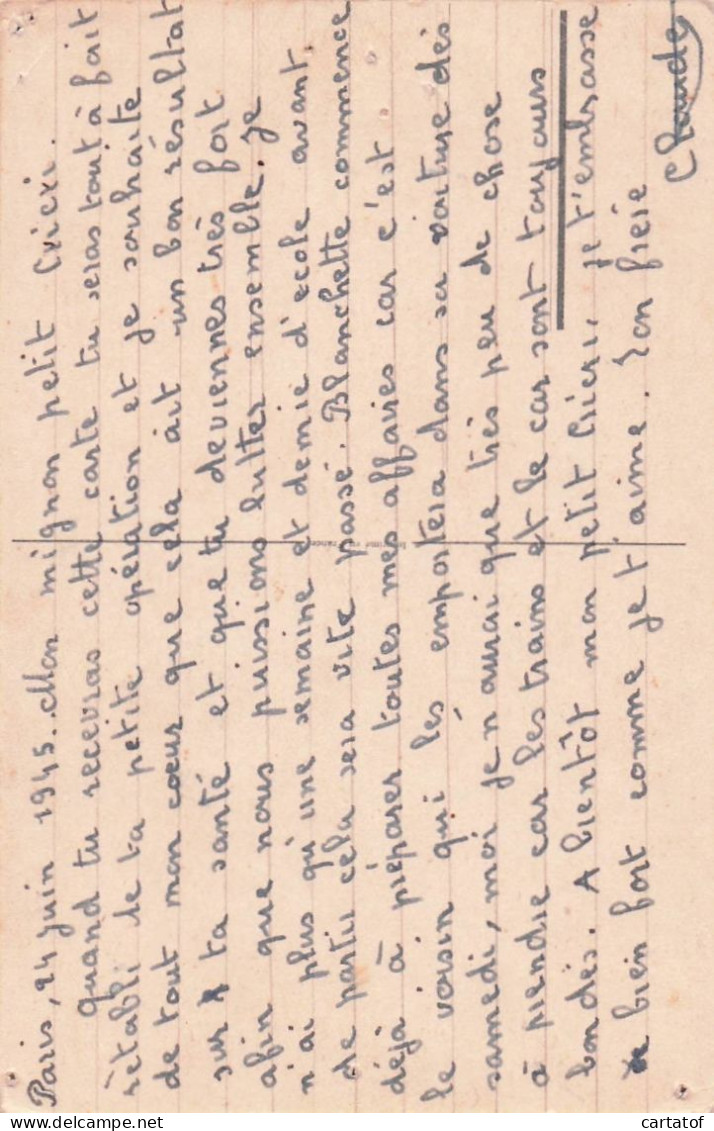 Paris, 24 Juin 1945. Mon mignon petit Cricri.
quand tu recevras cette carte tu seras tout à fait
rétabli de ta petite opération et je souhaite
de tout mon coeur que cela ait un bon résultat
sur ta santé et que tu deviennes très fort
afin que nous puissions lutter ensemble. Je
n'ai plus qu'une semaine et demie d'école avant
de partir cela sera vite passé. Blanchette commence
déjà à préparer toutes mes affaires car c'est
le voisin qui les emportera dans sa voiture dès
samedi, moi je n'aurai que très peu de chose
à prendre car les trains et le car sont toujours
bondés. A bientôt mon petit Cricri, je t'embrasse
bien fort comme je t'aime. Ton frère
Claude
cartatof